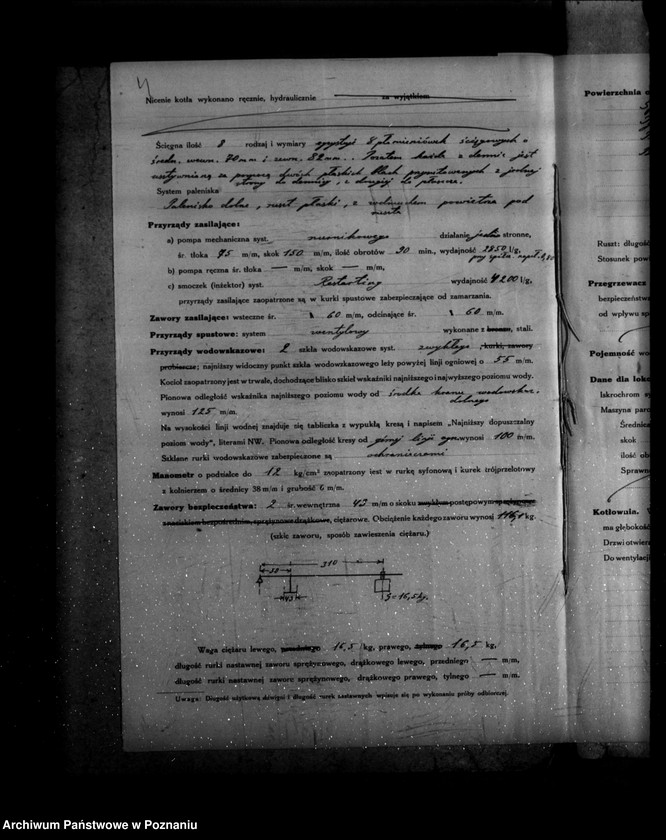 4
Nicenie kotła wykonano ręcznie, hydraulicznie za wyjątkiem
Ścięgna ilość 8 rodzaj i wymiary 8 płomieniówek ścięgowych o
średn. wewn. 70 mm i zewn. 82 mm. Poza tem każda z dennic jest
usztywniona za pomocą dwóch płaskich blach przynitowanych z jednej
strony do dennicy, z drugiej do płaszcza.
System paleniska
Palenisko dolne, ruszt płaski, z powietrza pod
ruszta
Przyrządy zasilające:
a) pompa mechaniczna syst. nurnikowego działanie jedno stronne,
śr. tłoka 75 m/m, skok 150 m/m, ilość obrotów 90 min., wydajność 2850 l/g,
b) pompa ręczna śr. tłoka — m/m, skok — m/m,
c) smoczek (inżektor) syst. Restarting wydajność 4200 l/g,
przyrządy zasilające zaopatrzone są w kurki spustowe zabezpieczające od zamarzania.
Zawory zasilające: wsteczne śr. 60 m/m, odcinające śr. 60 m/m.
Przyrządy spustowe: system wentylowy wykonane z bronzu, stali.
Przyrządy wodowskazowe: 2 szkła wodowskazowe syst. zwykłego, kurki, zawory
probiercze; najniższy widoczny punkt szkła wodowskazowego leży powyżej linji ogniowej o 55 m/m.
Kocioł zaopatrzony jest w trwałe, dochodzące blisko szkieł wskaźniki najniższego i najwyższego poziomu wody.
Pionowa odległość wskaźnika najniższego poziomu wody od środka kranu wodowskaz.
dolnego
wynosi 125 m/m.
Na wysokości linji wodnej znajduje się tabliczka z wypukłą kresą i napisem „Najniższy dopuszczalny
poziom wody", literami NW. Pionowa odległość kresy od górnej linji ogn. wynosi 100 m/m.
Szklane rurki wodowskazowe zabezpieczone są ochraniaczami
Manometr o podziałce do 12 kg/cm² zaopatrzony jest w rurkę syfonową i kurek trójprzelotowy
z kołnierzem o średnicy 38 m/m i grubość 6 m/m.
Zawory bezpieczeństwa: 2 śr. wewnętrzna 43 m/m o skoku zwykłym postępowym
znaciskiem bezpośrednim, sprężynowe drążkowe, ciężarowe. Obciążenie każdego zaworu wynosi 116,1 kg.
(szkic zaworu, sposób zawieszenia ciężaru.)
310
50
43
G=16,5 kg.
Waga ciężaru lewego, przedniego 16,5 /kg, prawego, tylnego 16,5 kg,
długość rurki nastawnej zaworu sprężynowego, drążkowego lewego, przedniego — m/m,
długość rurki nastawnej zaworu sprężynowego, drążkowego prawego, tylnego — m/m.
Uwaga: Długość użytkową dźwigni i długość rurek nastawnych wpisuje się po wykonaniu próby odbiorczej.
Powierzchnia o
Ruszt: długość
Stosunek pow
Przegrzewacz
bezpieczeństwa
od wpływu sp
Pojemność wo
Dane dla loko
Iskrochron sy
Maszyna paro
Średnica
skok
ilość ob
Sprawn
Kotłownia.
ma głębokość
Drzwi otwier
Do wentylacji
Archiwum Państwowe w Poznaniu